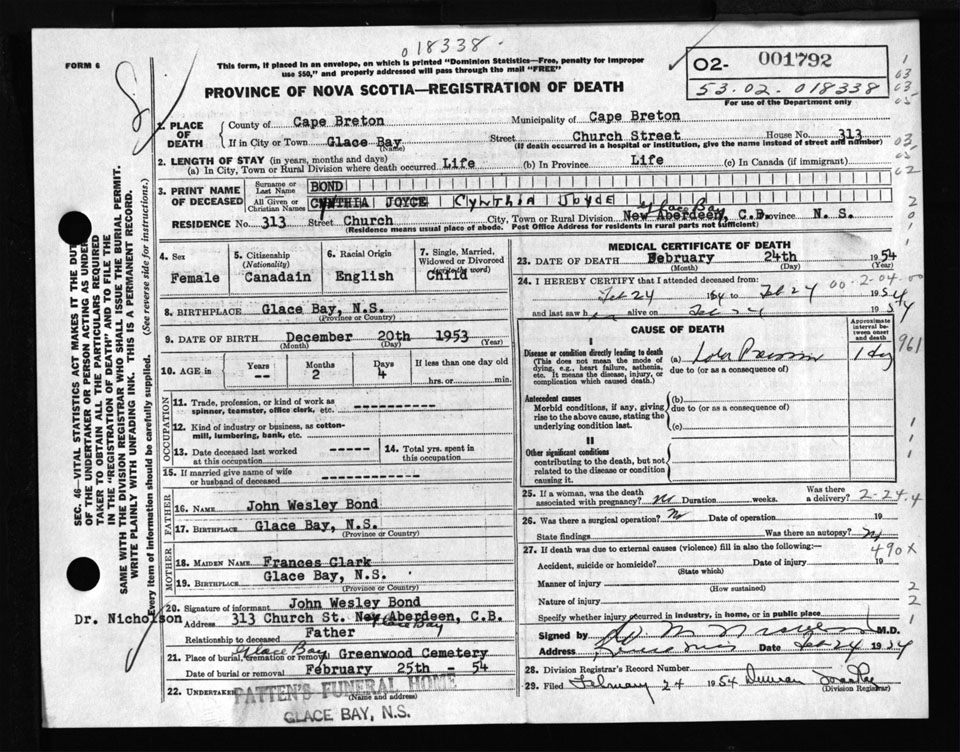 018338.
FORM 6
This form, if placed in an envelope, on which is printed "Dominion Statistics—Free, penalty for improper
use $50," and properly addressed will pass through the mail "FREE"
O2- 001792
53.02.018338
For use of the Department only
PROVINCE OF NOVA SCOTIA—REGISTRATION OF DEATH
1. PLACE OF DEATH
County of Cape Breton Municipality of Cape Breton
If in City or Town Glace Bay Street Church Street House No. 313
(Name) (If death occurred in a hospital or institution, give the name instead of street and number)
2. LENGTH OF STAY (in years, months and days)
(a) In City, Town or Rural Division where death occurred Life (b) In Province Life (c) In Canada (if immigrant)
3. PRINT NAME OF DECEASED
Surname or Last Name BOND
All Given or Christian Names CYNTHIA JOYCE Cynthia Joyce
RESIDENCE No. 313 Street Church City, Town or Rural Division New Aberdeen, C.B. Glace Bay Province N. S.
(Residence means usual place of abode. Post Office Address for residents in rural parts not sufficient)
4. Sex Female
5. Citizenship (Nationality) Canadain
6. Racial Origin English
7. Single, Married, Widowed or Divorced (write the word) Child
8. BIRTHPLACE Glace Bay, N.S.
(Province or Country)
9. DATE OF BIRTH December 20th 1953
(Month) (Day) (Year)
10. AGE in Years -- Months 2 Days 4 If less than one day old hrs. or min.
OCCUPATION
11. Trade, profession, or kind of work as spinner, teamster, office clerk, etc. ------------
12. Kind of industry or business, as cotton-mill, lumbering, bank, etc. ------------
13. Date deceased last worked at this occupation ------
14. Total yrs. spent in this occupation ------
15. If married give name of wife or husband of deceased
FATHER
16. NAME John Wesley Bond
17. BIRTHPLACE Glace Bay, N.S.
(Province or Country)
MOTHER
18. MAIDEN NAME Frances Clark
19. BIRTHPLACE Glace Bay, N.S.
(Province or Country)
20. Signature of informant John Wesley Bond
Dr. Nicholson
Address 313 Church St. New Aberdeen, C.B.
Glace Bay
Relationship to deceased Father
21. Place of burial, cremation or removal Glace Bay Greenwood Cemetery
Date of burial or removal February 25th - 54
22. UNDERTAKER PATTEN'S FUNERAL HOME
(Name and address)
GLACE BAY, N.S.
MEDICAL CERTIFICATE OF DEATH
23. DATE OF DEATH February 24th 1954
(Month) (Day) (Year)
24. I HEREBY CERTIFY that I attended deceased from:
Feb 24 1954 to Feb 24 1954
and last saw h alive on Feb 24 1954
CAUSE OF DEATH
Approximate interval between onset and death
I
Disease or condition directly leading to death (a) 1 day
(This does not mean the mode of dying, e.g., heart failure, asthenia, etc. It means the disease, injury, or complication which caused death.)
due to (or as a consequence of)
Antecedent causes (b)
Morbid conditions, if any, giving rise to the above cause, stating the underlying condition last.
due to (or as a consequence of)
(c)
II
Other significant conditions
contributing to the death, but not related to the disease or condition causing it.
25. If a woman, was the death associated with pregnancy? No Duration weeks. Was there a delivery? 2-24.4
26. Was there a surgical operation? No Date of operation 19
State findings Was there an autopsy? No
27. If death was due to external causes (violence) fill in also the following:— 490X
Accident, suicide or homicide? Date of injury 19
(State which)
Manner of injury
(How sustained)
Nature of injury
Specify whether injury occurred in industry, in home, or in public place
Signed by M.D.
Address Date Feb 24 1954
28. Division Registrar's Record Number
29. Filed February 24 1954 Duncan
(Division Registrar)
SEC. 46—VITAL STATISTICS ACT MAKES IT THE DUTY
OF THE UNDERTAKER OR PERSON ACTING AS UNDER-
TAKER TO OBTAIN ALL THE PARTICULARS REQUIRED
IN THE "REGISTRATION OF DEATH" AND TO FILE THE
SAME WITH THE DIVISION REGISTRAR WHO SHALL ISSUE THE BURIAL PERMIT.
WRITE PLAINLY WITH UNFADING INK. THIS IS A PERMANENT RECORD.
Every item of information should be carefully supplied. (See reverse side for instructions.)